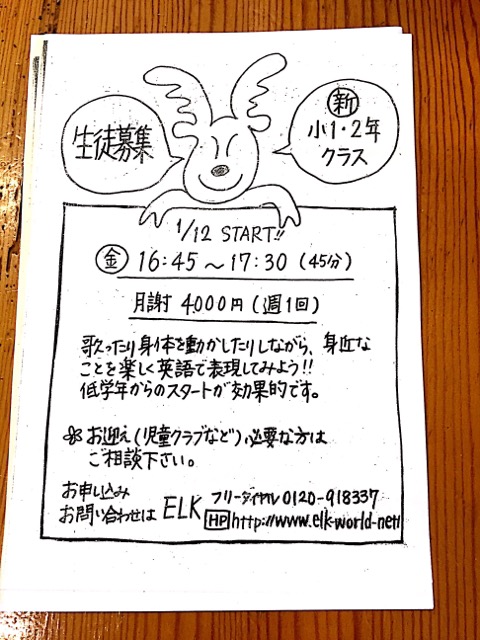 生徒募集
新
小1・2年
クラス
1/12 START!!
金 16:45〜17:30 (45分)
月謝 4000円(週1回)
歌ったり身体を動かしたりしながら、身近な
ことを楽しく英語で表現してみよう!!
低学年からのスタートが効果的です。
お迎え(児童クラブなど)必要な方は
ご相談下さい。
お申し込み
お問い合わせは ELK フリーダイヤル 0120-918337
HP http://www.elk-world-net/